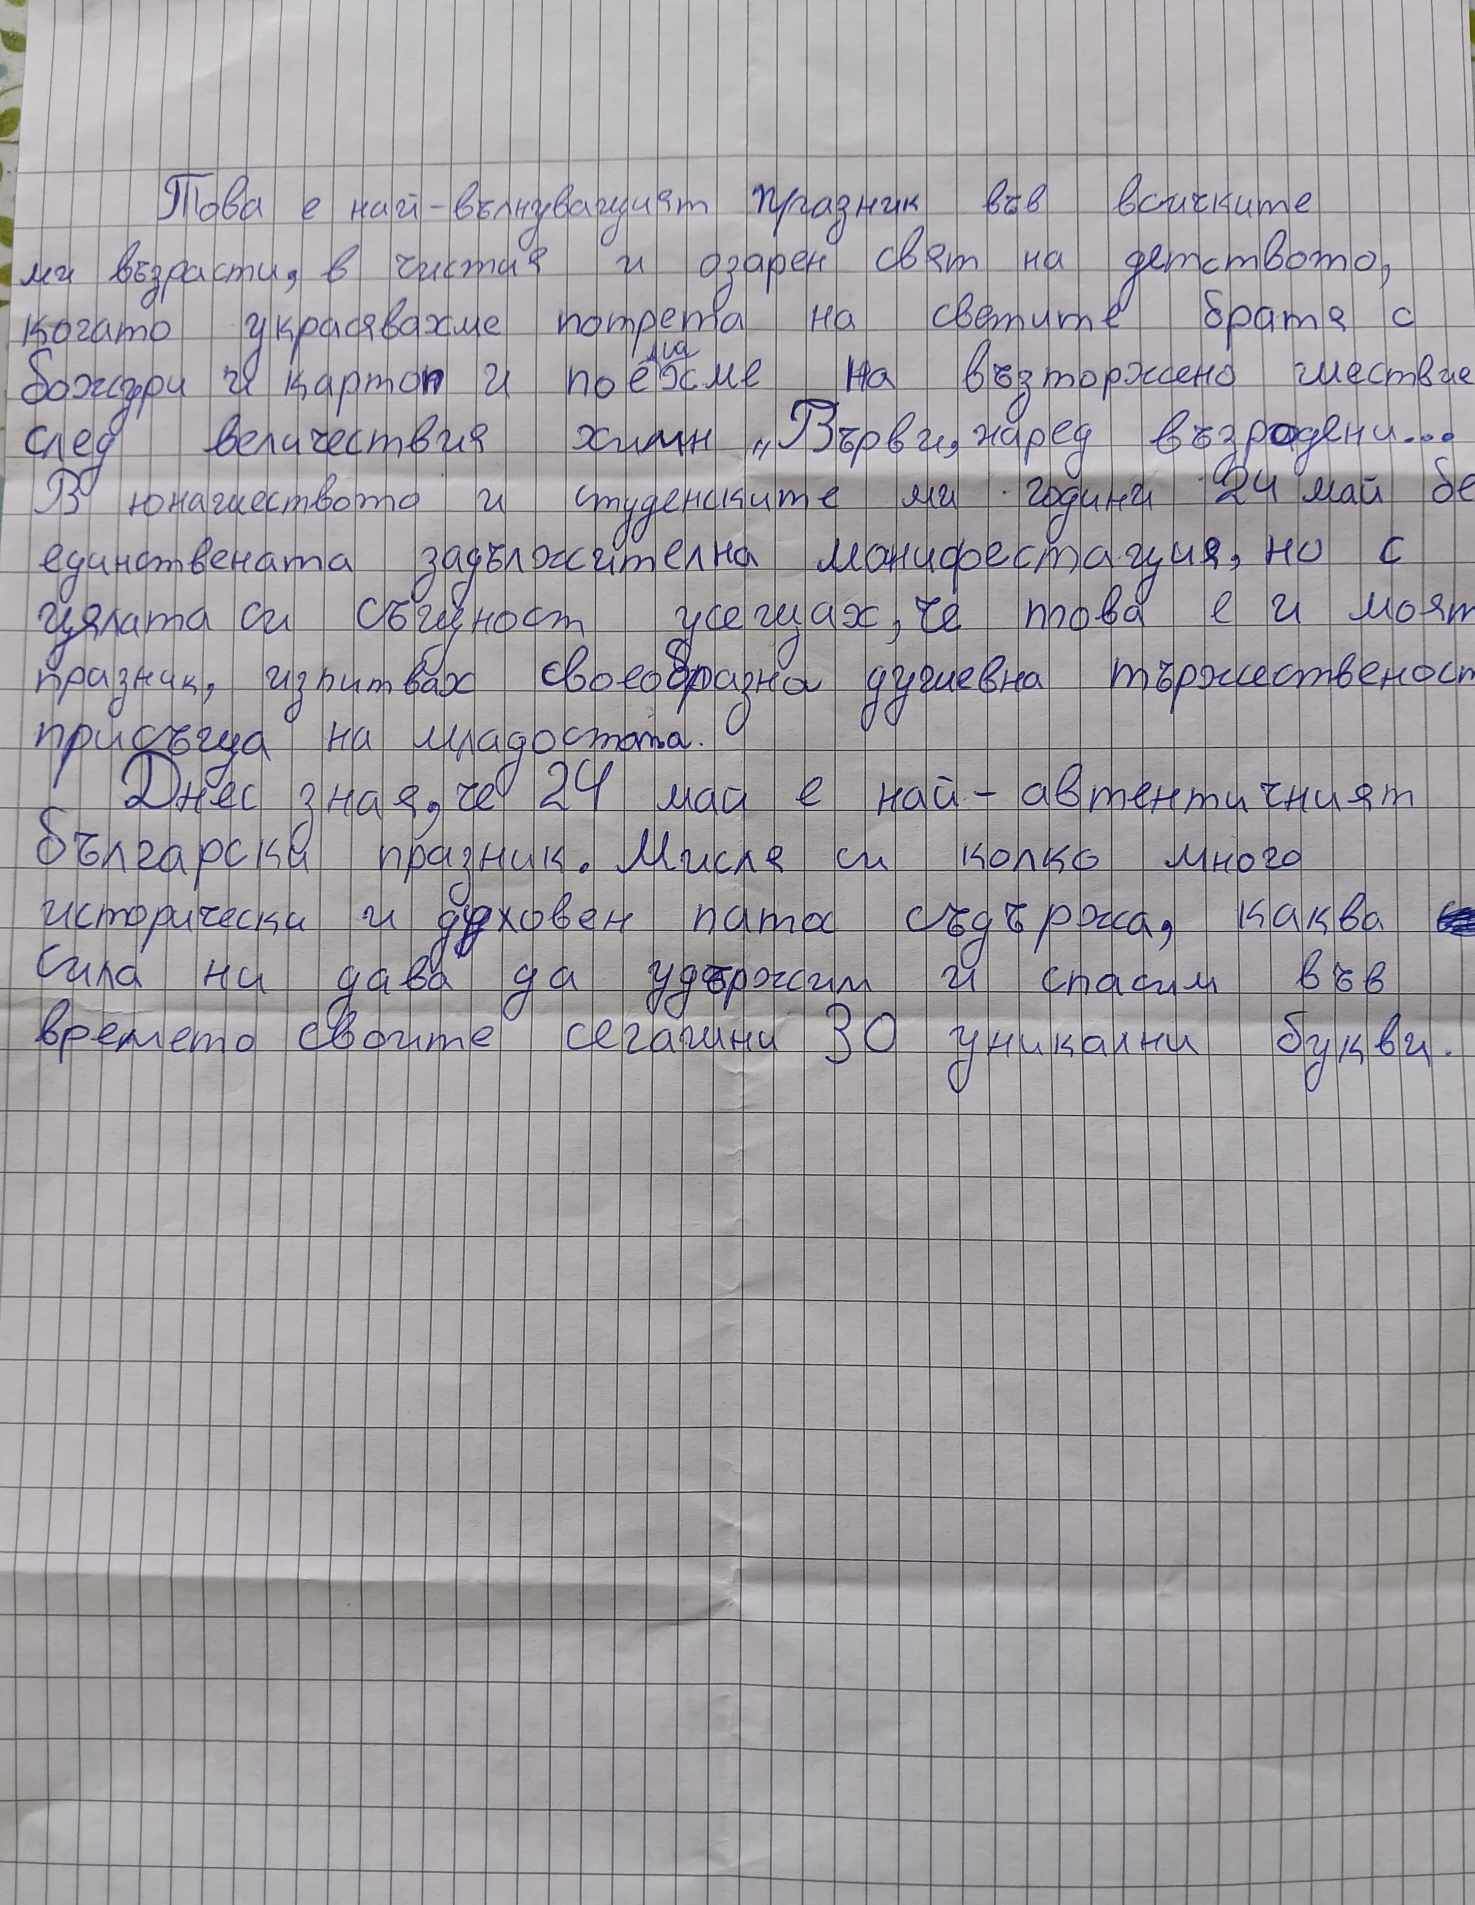 Това е най-вълнуващият празник във всичките
ми възрасти, в чистия и озарен свят на детството,
когато украсявахме потрета на светите братя с
божури и картон и поемахме на възторжено шествие
след величествия химн „Върви, народ възродени...
В юношеството и студенските ми години 24 май бе
единствената задължителна манифестация, но с
цялата си същност усещах, че това е и моят
празник, изпитвах своеобразна душевна тържественост
присъща на младостта.
Днес зная, че 24 май е най-автентичният
български празник. Мисля си колко много
исторически и духовен патос съдържа, каква
сила ни дава да удържим и спасим във
времето своите сегашни 30 уникални букви.